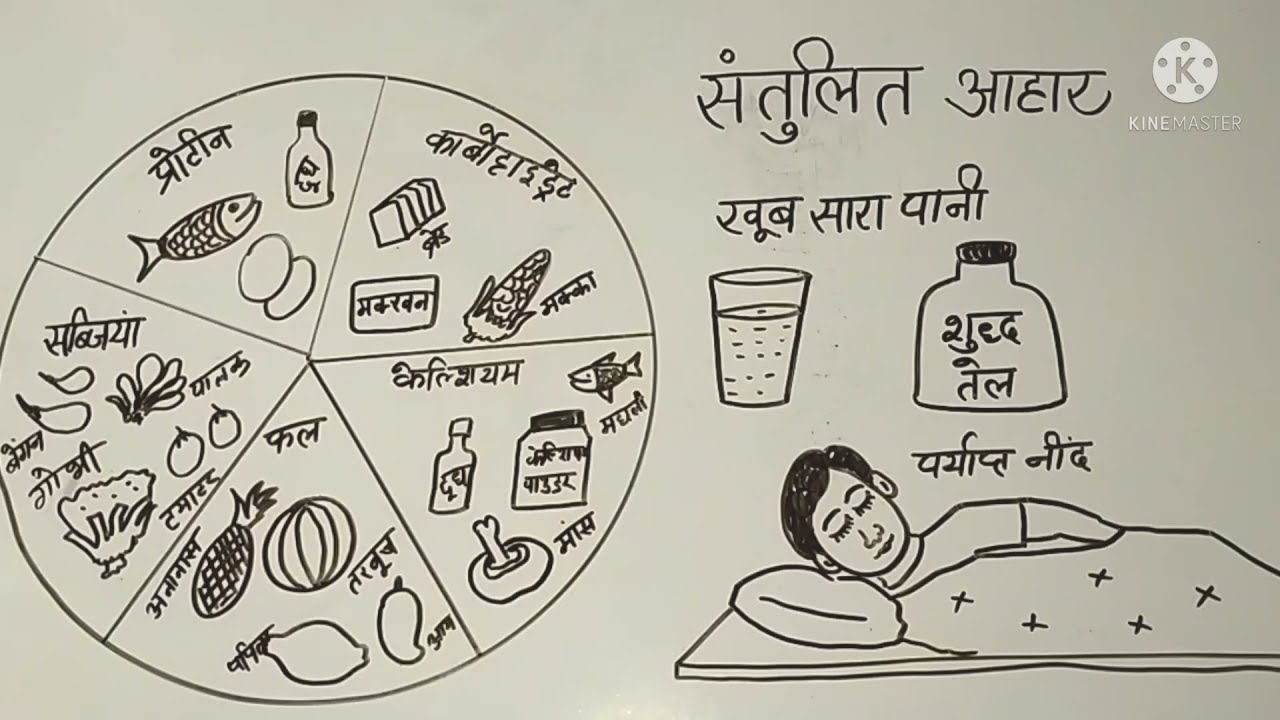 संतुलित आहार
KINEMASTER
प्रोटीन
दूध
कार्बोहाइड्रेट
ब्रेड
मक्खन
मक्का
खूब सारा पानी
शुद्ध
तेल
सब्जियां
पालक
बैंगन
गोभी
टमाटर
केल्शियम
मछली
दूध
केल्शियम
पाउडर
मांस
फल
अनानास
तरबूच
आम
पर्याप्त नींद